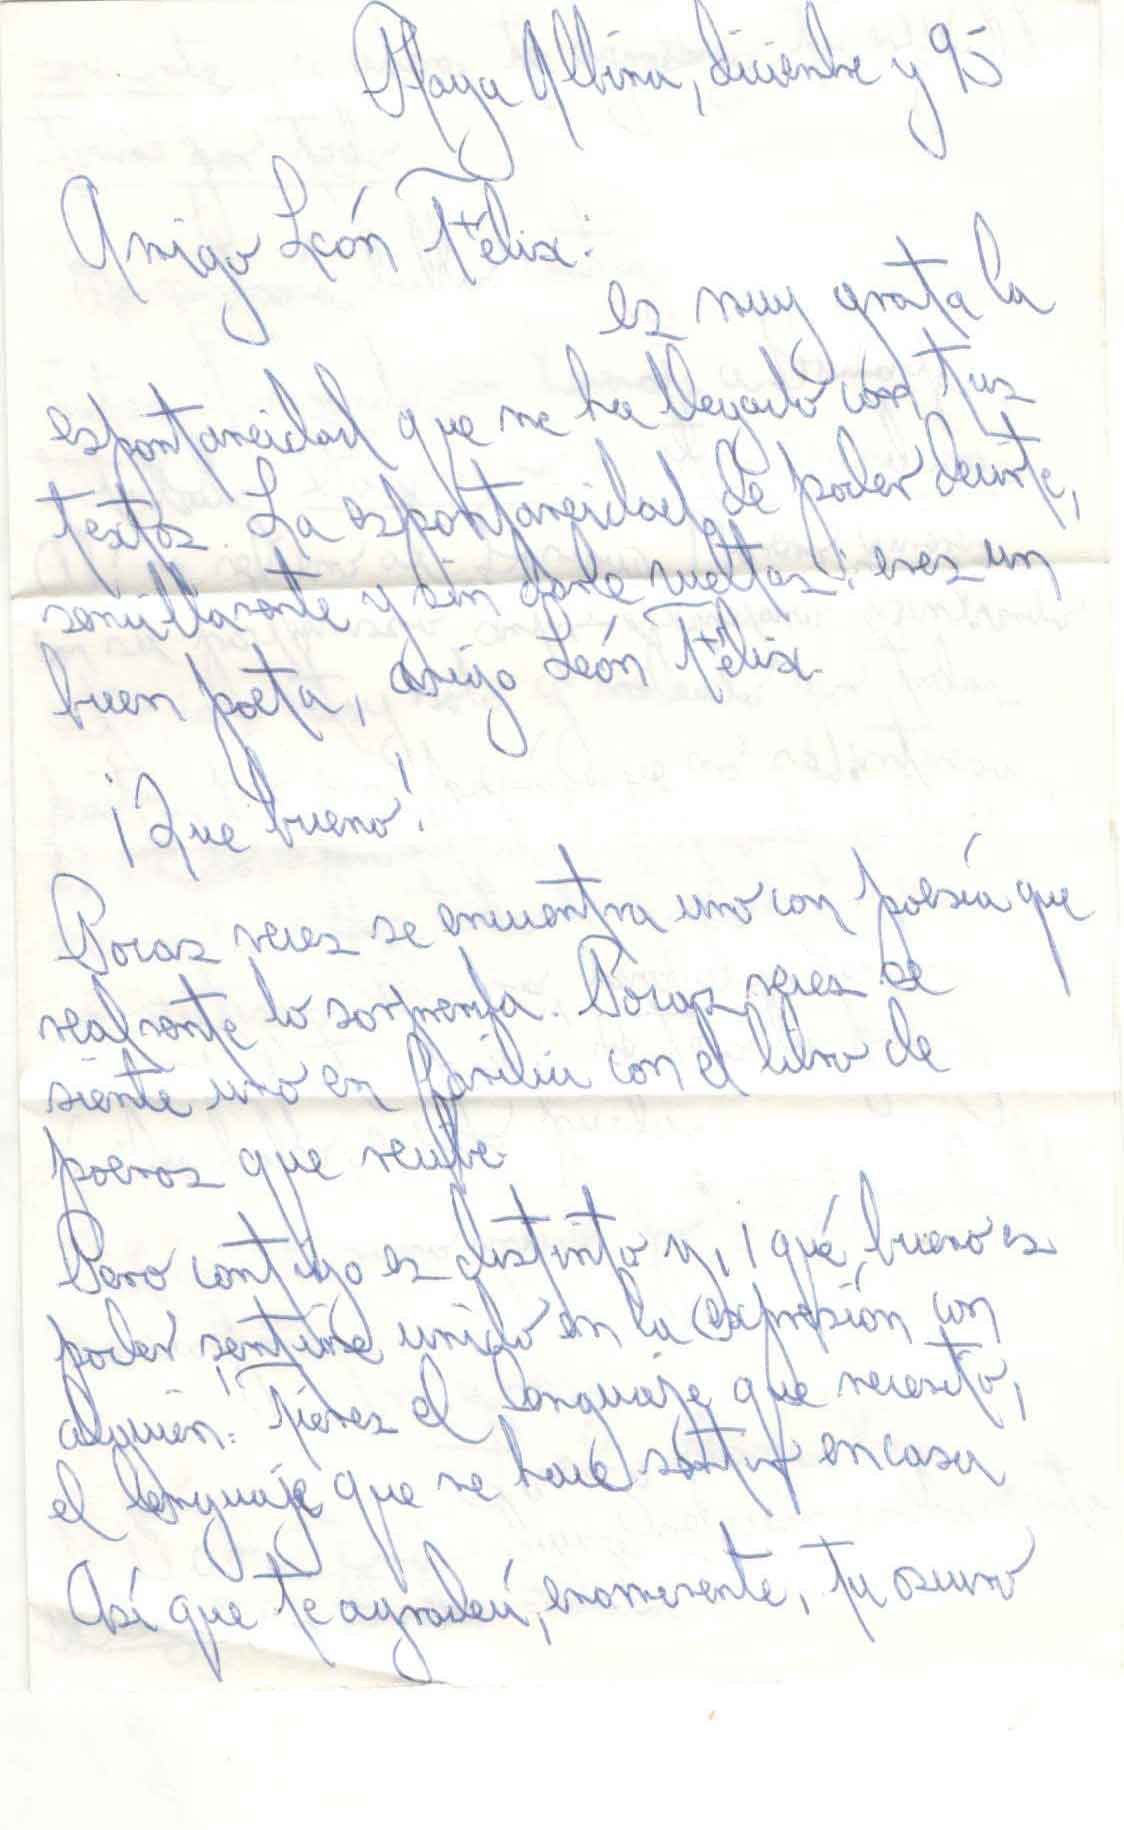 Playa Albina, diciembre y 95
Amigo León Félix:
es muy grata la
espontaneidad que me ha llegado con tus
textos. La espontaneidad de poder decirte,
sencillamente y sin darle vueltas: eres un
buen poeta, amigo León Félix.
¡Que bueno!
Pocas veces se encuentra uno con poesía que
realmente lo sorprenda. Pocas veces se
siente uno en familia con el libro de
poemas que recibe.
Pero contigo es distinto y, ¡qué bueno es
poder sentirse unido en la expresión con
alguien! Tienes el lenguaje que necesito,
el lenguaje que me hace sentir en casa
Así que te agradecí, enormemente, tu oscuro